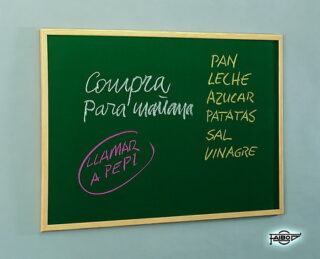 Compra
para mañana
LLAMAR
A PEPI
PAN
LECHE
AZUCAR
PATATAS
SAL
VINAGRE